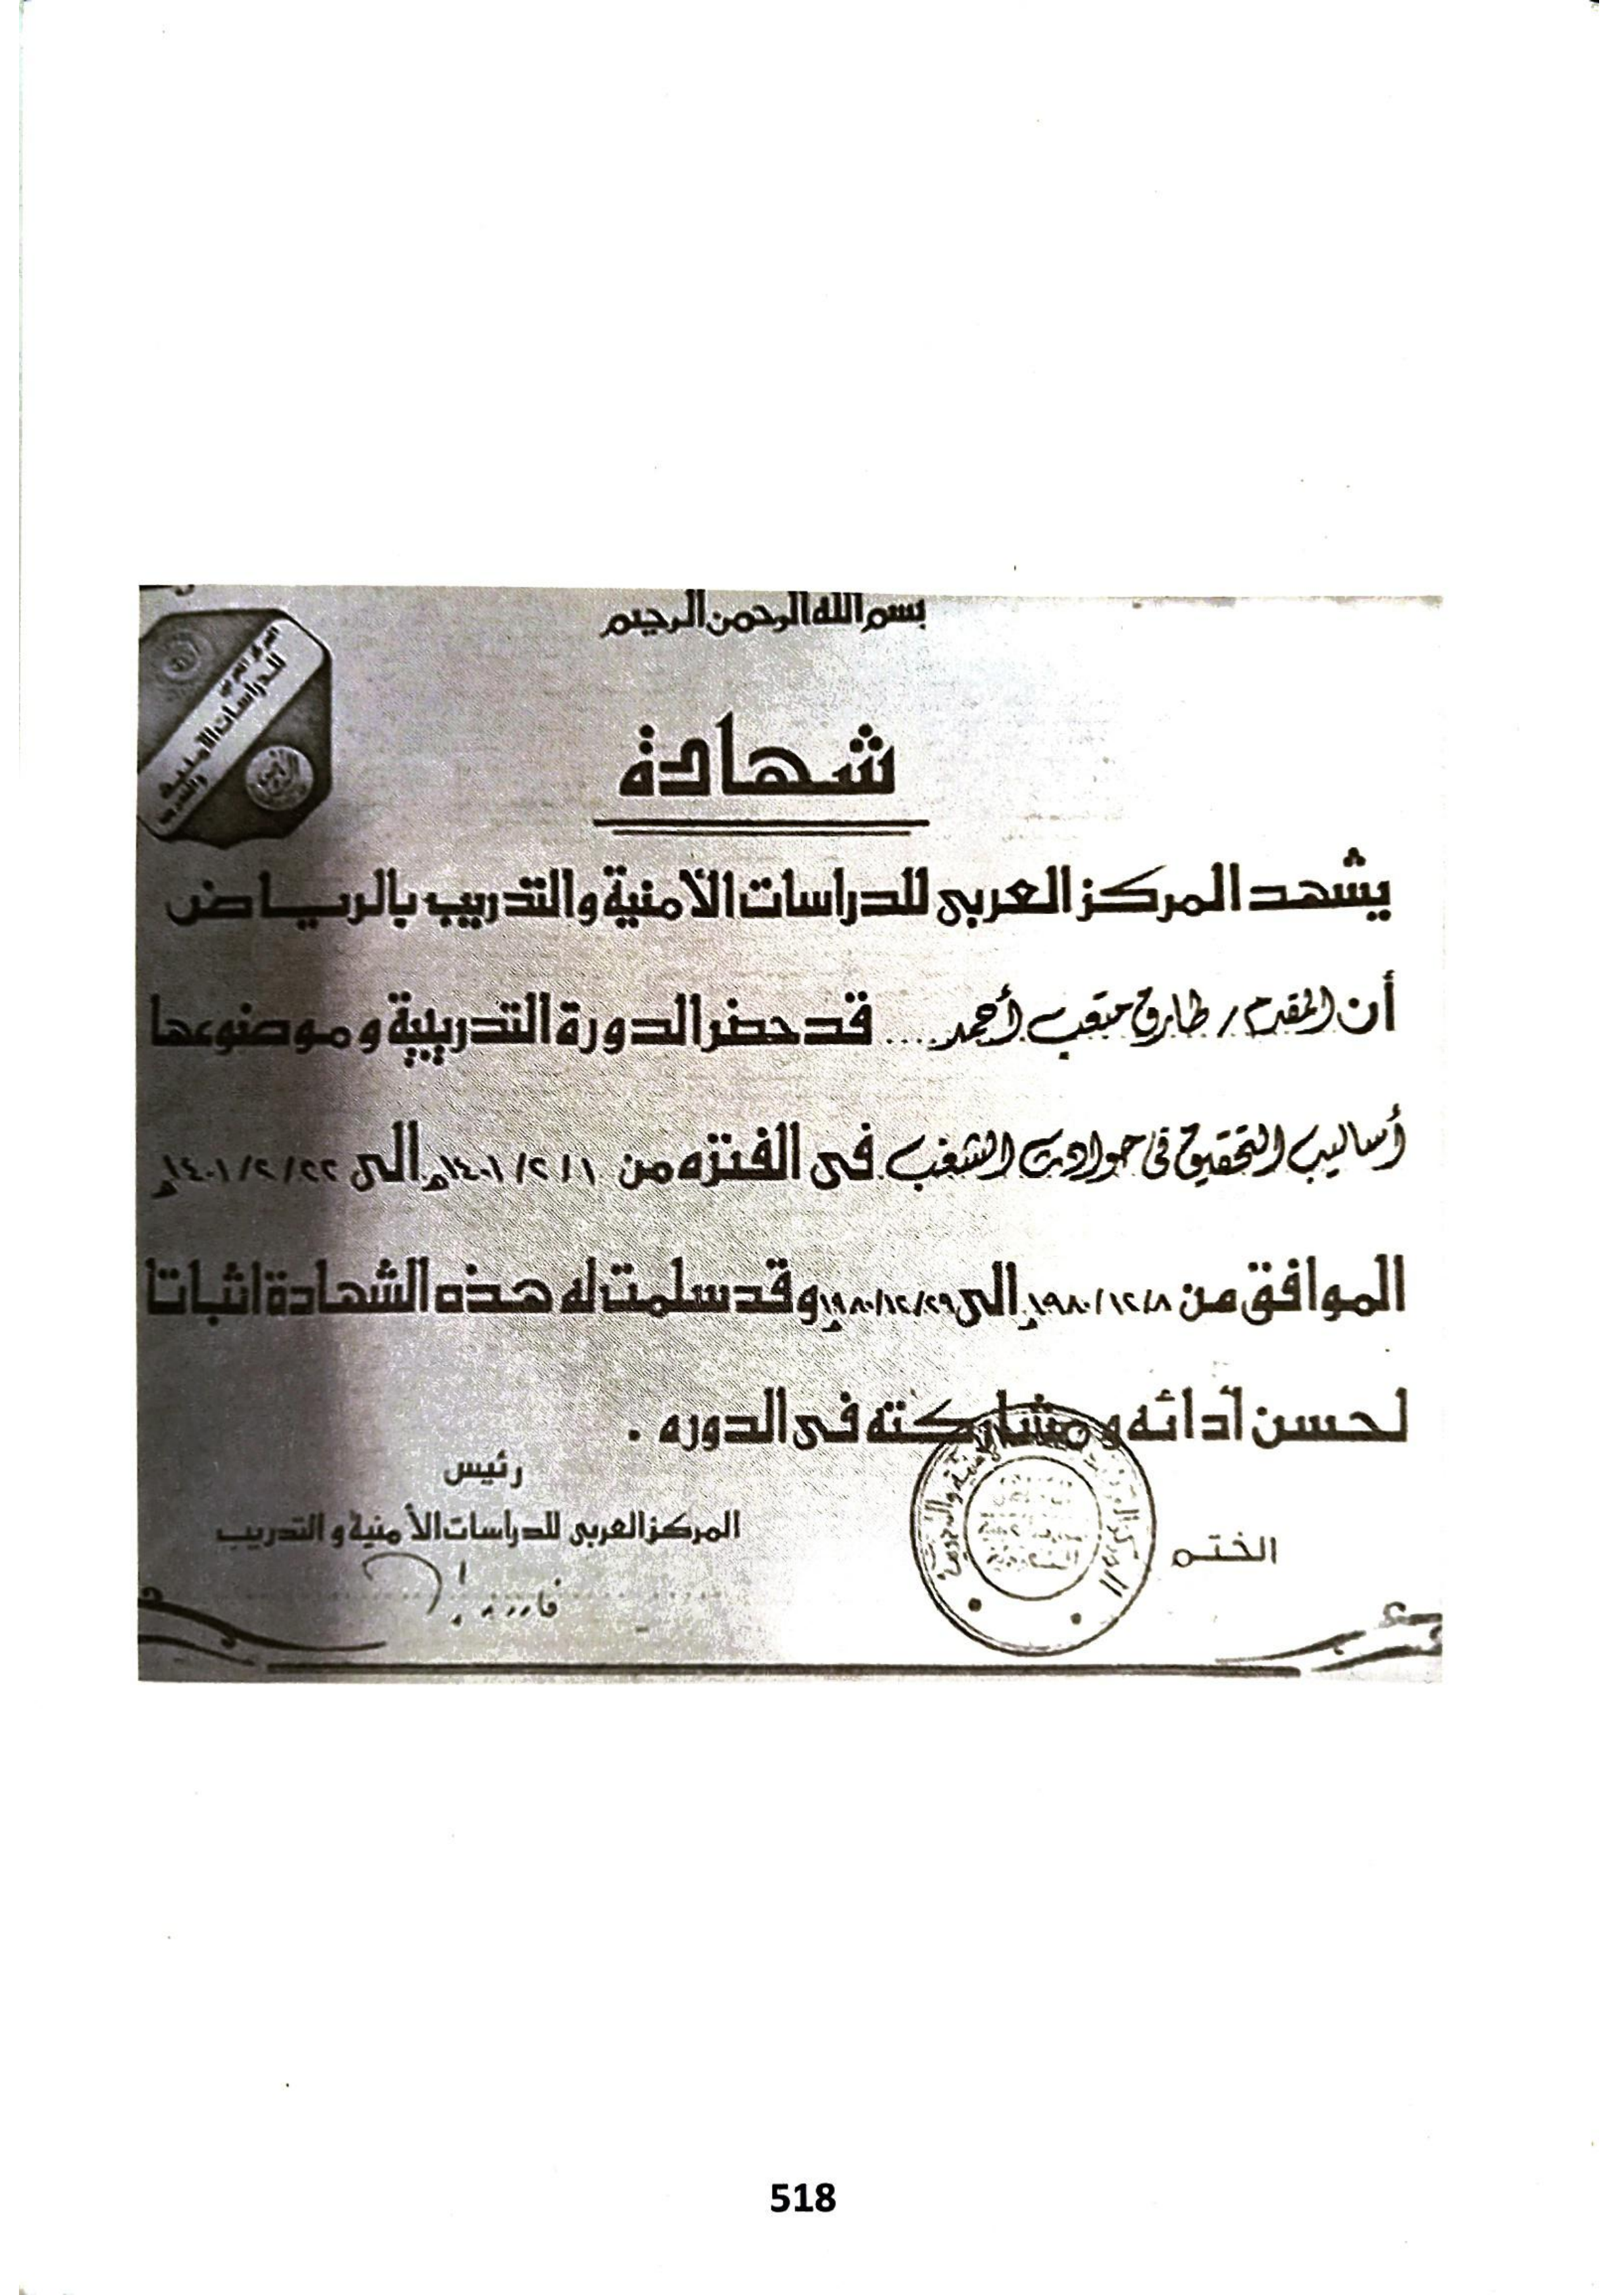 بسم الله الرحمن الرحيم
المركز العربي
للدراسات الأمنية
والتدريب
شهادة
يشهد المركز العربى للدراسات الأمنية والتدريب بالرياض
أن المقدم / طارق متعب أحمد .... قد حضر الدورة التدريبية وموضوعها
أساليب التحقيق فى حوادث الشغب. فى الفتره من ١/٢/١٤٠١هـ الى ٢٢/٢/١٤٠١هـ
الموافق من ٨/١٢/١٩٨٠م الى ٢٩/١٢/١٩٨٠م وقد سلمت له هذه الشهادة اثباتا
لحسن أدائه ومشاركته فى الدوره .
رئيس
المركز العربى للدراسات الأمنية والتدريب
الختم
518